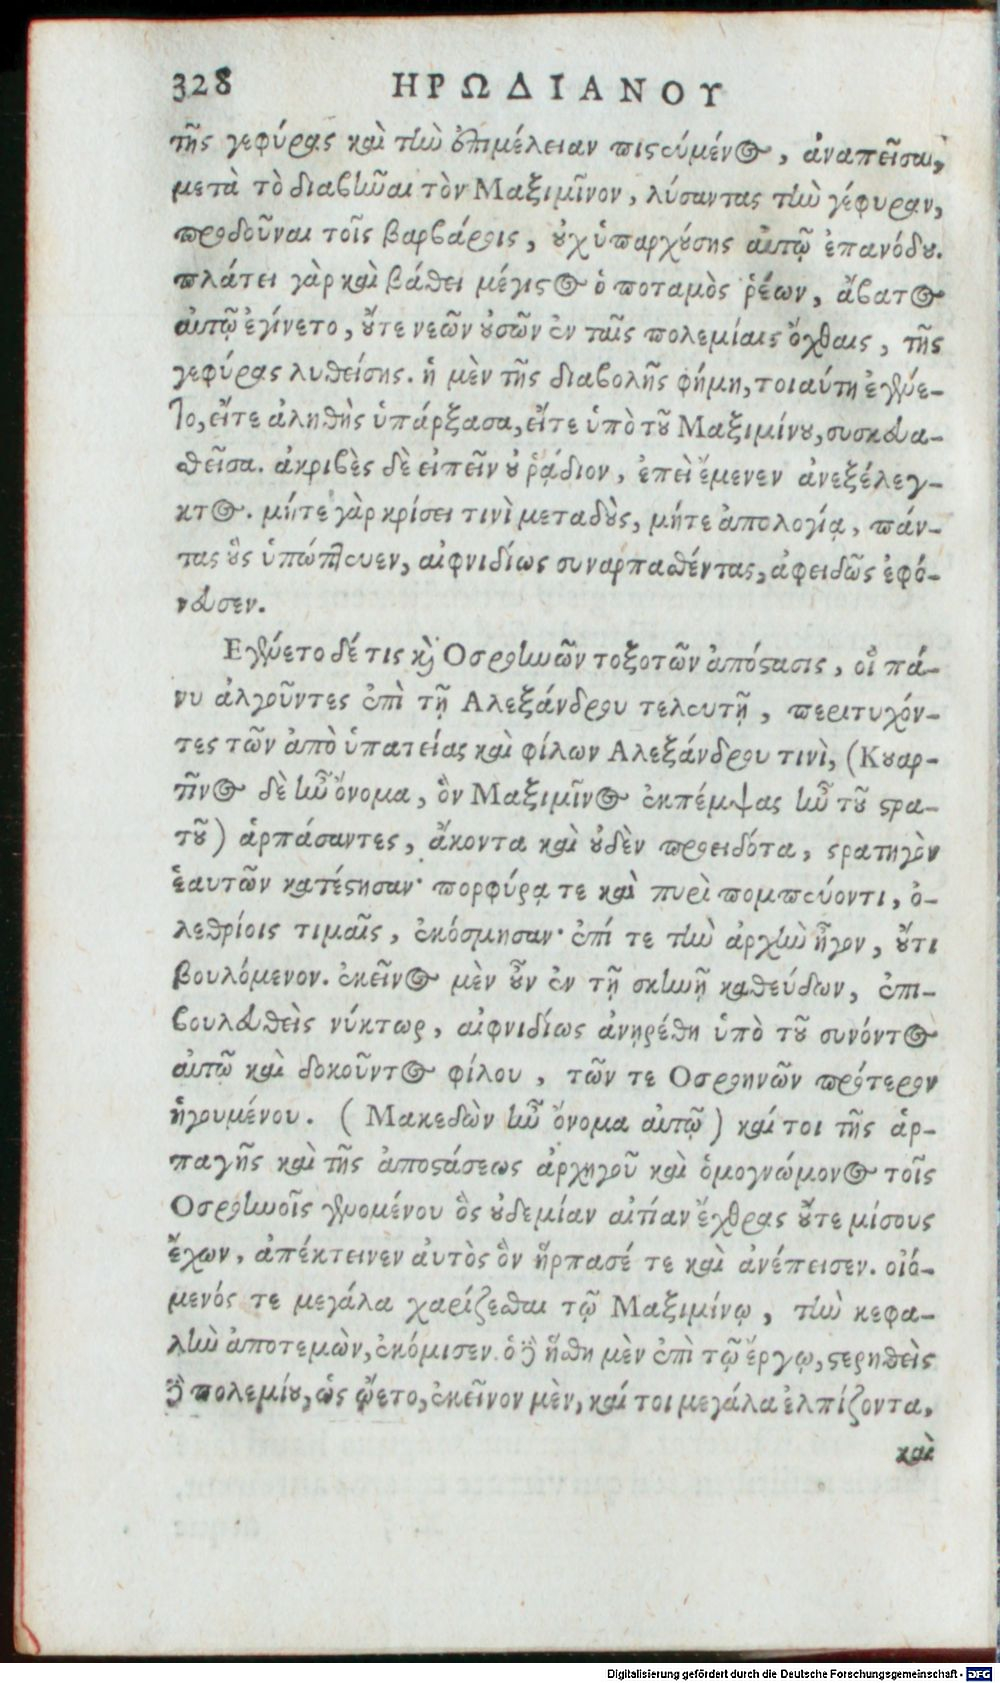 328 ΗΡΩΔΙΑΝΟΥ
τῆς γεφύρας καὶ τὴν ἐπιμέλειαν πιστευμένος, ἀναπεῖσαι,
μετὰ τὸ διαβῆναι τὸν Μαξιμῖνον, λύσαντας τὴν γέφυραν,
προδοῦναι τοῖς βαρβάροις, οὐχ ὑπαρχούσης αὐτῷ ἐπανόδου.
πλάτει γὰρ καὶ βάθει μέγιστος ὁ ποταμὸς ῥέων, ἄβατος
αὐτῷ ἐγίνετο, οὔτε νεῶν οὐσῶν ἐν ταῖς πολεμίαις ὄχθαις, τῆς
γεφύρας λυθείσης. ἡ μὲν τῆς διαβολῆς φήμη, τοιαύτη ἐγένε-
το, εἴτε ἀληθὴς ὑπάρξασα, εἴτε ὑπὸ τοῦ Μαξιμίνου, συσκευα-
θεῖσα. ἀκριβὲς δὲ εἰπεῖν οὐ ῥᾴδιον, ἐπεὶ ἔμενεν ἀνεξέλεγ-
κτος. μήτε γὰρ κρίσει τινὶ μεταδοὺς, μήτε ἀπολογίᾳ, πάν-
τας οὓς ὑπώπτευεν, αἰφνιδίως συναρπασθέντας, ἀφειδῶς ἐφό-
νευσεν.
Εγένετο δέ τις καὶ Οσροηνῶν τοξοτῶν ἀπόστασις, οἳ πά-
νυ ἀλγοῦντες ἐπὶ τῇ Αλεξάνδρου τελευτῇ, περιτυχόν-
τες τῶν ἀπὸ ὑπατείας καὶ φίλων Αλεξάνδρου τινὶ, (Κουαρ-
τῖνος δὲ ἦν ὄνομα, ὃν Μαξιμῖνος ἐκπέμψας ἦν τοῦ στρα-
τοῦ) ἁρπάσαντες, ἄκοντα καὶ οὐδὲν προειδότα, στρατηγὸν
ἑαυτῶν κατέστησαν· πορφύρᾳ τε καὶ πυρὶ πομπεύοντι, ὀ-
λεθρίοις τιμαῖς, ἐκόσμησαν· ἐπί τε τὴν ἀρχὴν ἦγον, οὔτι
βουλόμενον. ἐκεῖνος μὲν οὖν ἐν τῇ σκηνῇ καθεύδων, ἐπι-
βουλευθεὶς νύκτωρ, αἰφνιδίως ἀνῃρέθη ὑπὸ τοῦ συνόντος
αὐτῷ καὶ δοκοῦντος φίλου, τῶν τε Οσροηνῶν πρότερον
ἡγουμένου. (Μακεδὼν ἦν ὄνομα αὐτῷ) καί τοι τῆς ἁρ-
παγῆς καὶ τῆς ἀποστάσεως ἀρχηγοῦ καὶ ὁμογνώμονος τοῖς
Οσροηνοῖς γενομένου ὃς οὐδεμίαν αἰτίαν ἔχθρας οὔτε μίσους
ἔχων, ἀπέκτεινεν αὐτὸς ὃν ἥρπασέ τε καὶ ἀνέπεισεν. οἰό-
μενός τε μεγάλα χαρίζεσθαι τῷ Μαξιμίνῳ, τὴν κεφα-
λὴν ἀποτεμὼν, ἐκόμισεν. ὁ δὲ ἥσθη μὲν ἐπὶ τῷ ἔργῳ, στερηθεὶς
τοῦ πολεμίου, ὡς ᾤετο, ἐκεῖνον μὲν, καί τοι μεγάλα ἐλπίζοντα,
καὶ
Digitalisierung gefördert durch die Deutsche Forschungsgemeinschaft - DFG